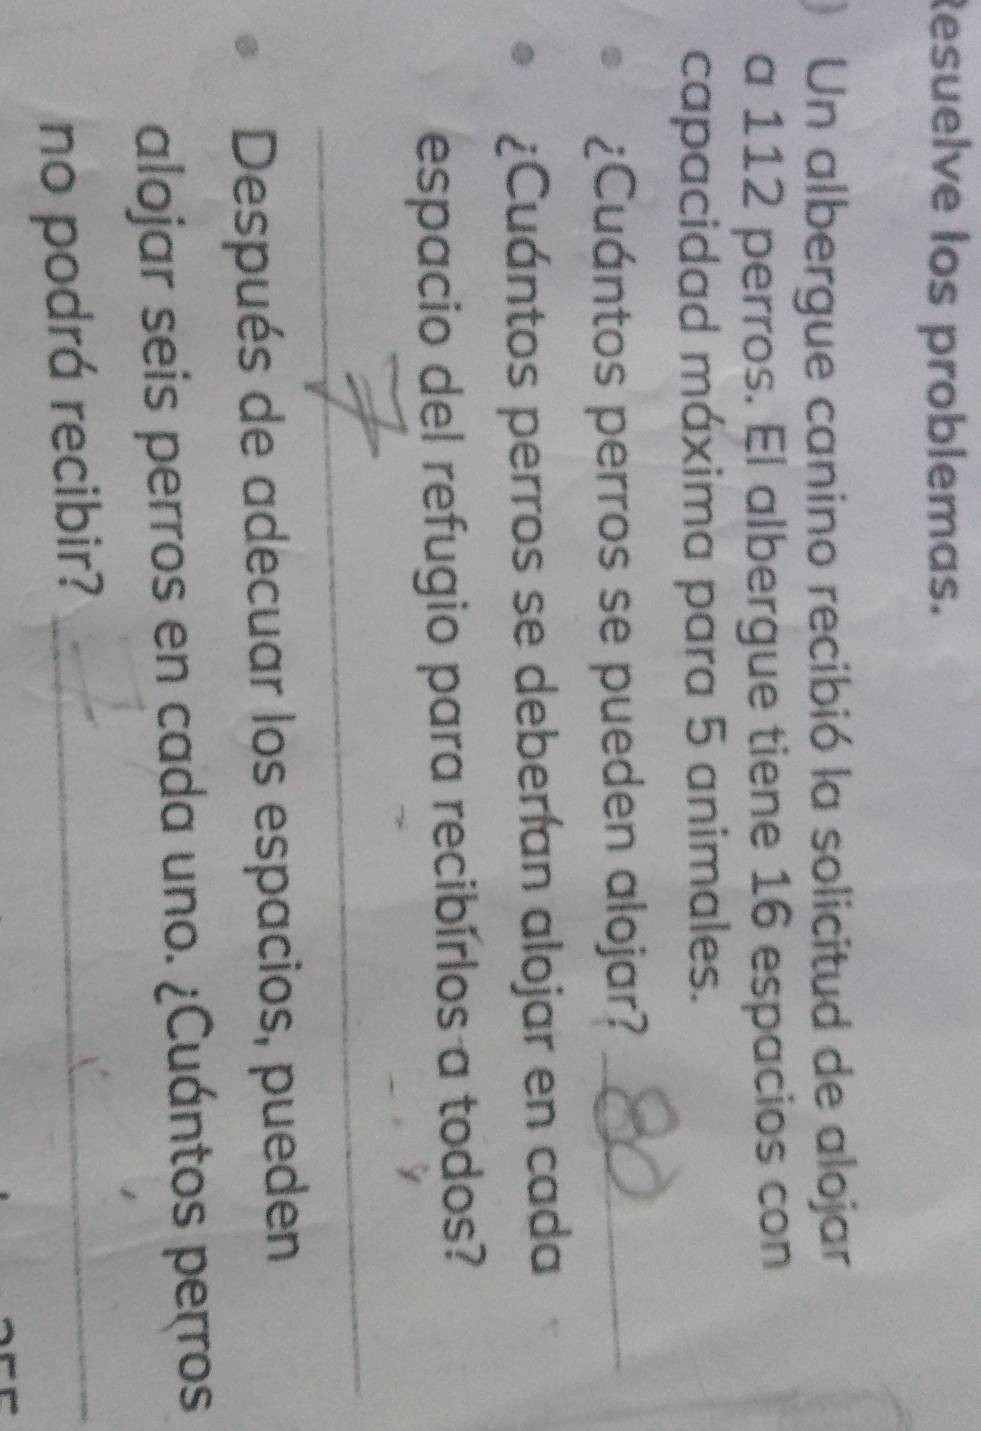 Resuelve los problemas.
) Un albergue canino recibió la solicitud de alojar
a 112 perros. El albergue tiene 16 espacios con
capacidad máxima para 5 animales.
• ¿Cuántos perros se pueden alojar? 80
• ¿Cuántos perros se deberían alojar en cada
espacio del refugio para recibírlos a todos?
7
• Después de adecuar los espacios, pueden
alojar seis perros en cada uno. ¿Cuántos perros
no podrá recibir?